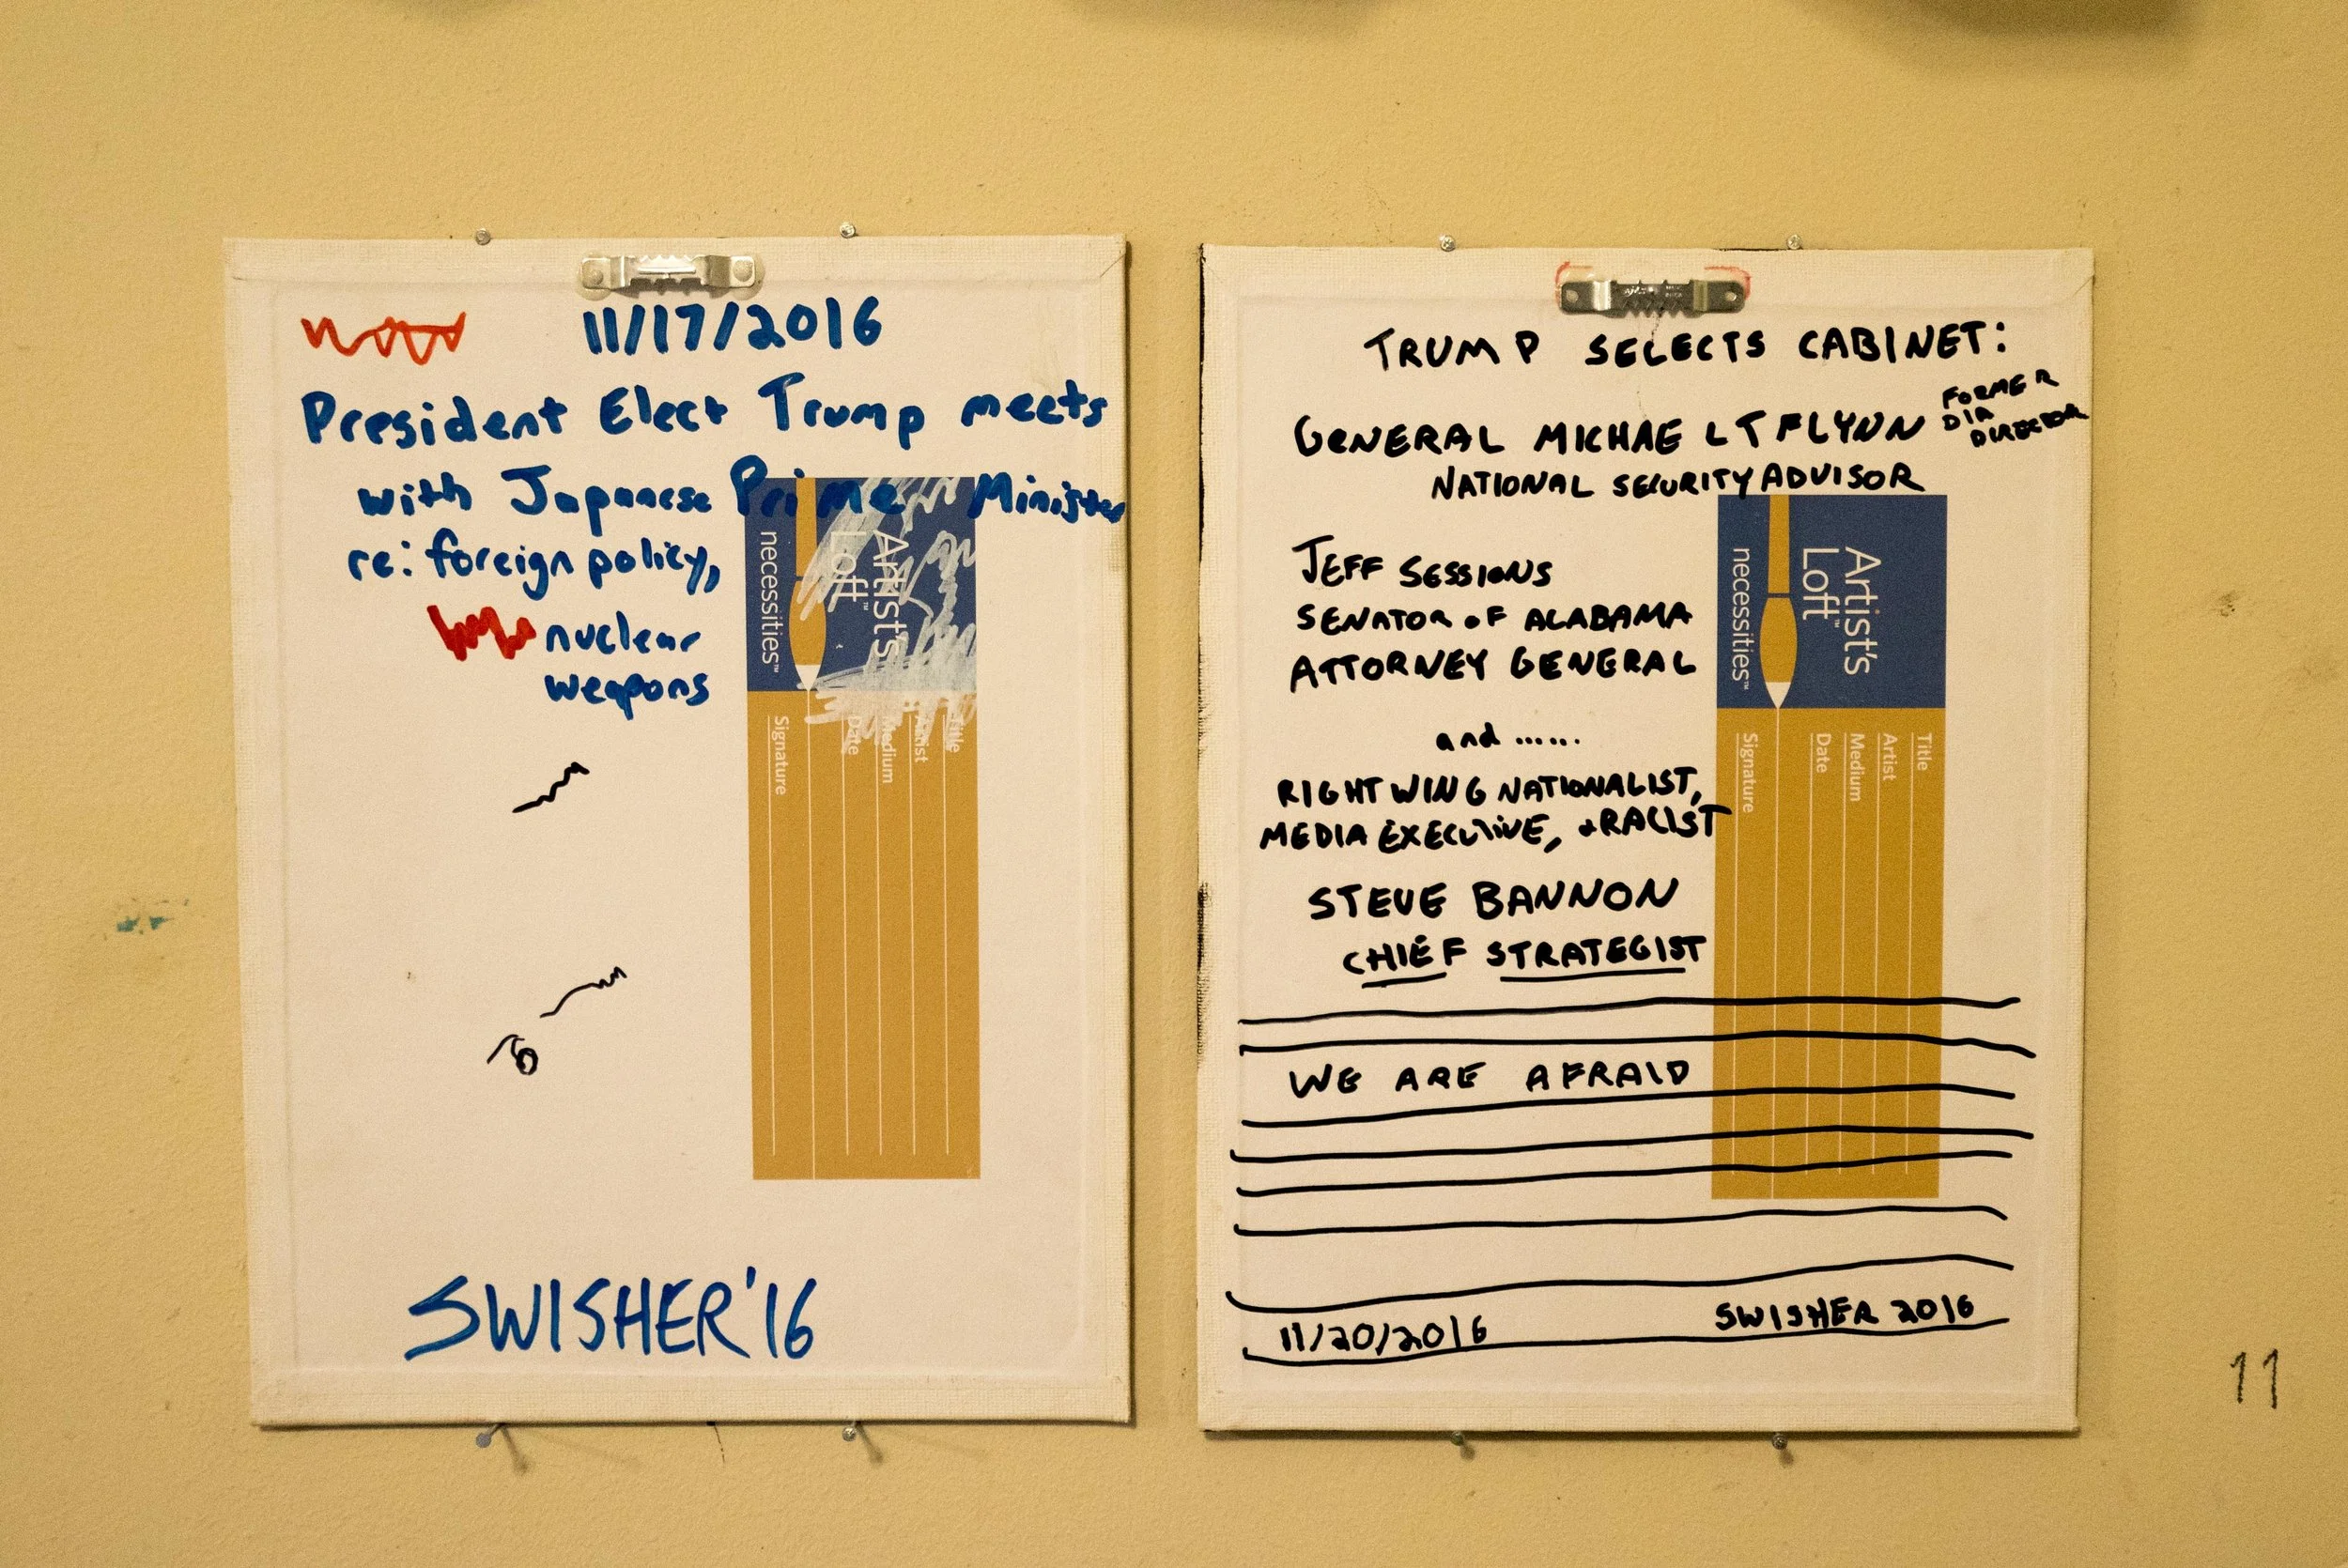 11/17/2016
President Elect Trump meets
with Japanese Prime Minister
re: foreign policy,
nuclear
weapons
Artist's
Loft™
necessities™
Title
Artist
Medium
Date
Signature
SWISHER '16
TRUMP SELECTS CABINET:
GENERAL MICHAEL T FLYNN
FORMER
DIA
DIRECTOR
NATIONAL SECURITY ADVISOR
JEFF SESSIONS
SENATOR OF ALABAMA
ATTORNEY GENERAL
and ......
RIGHT WING NATIONALIST,
MEDIA EXECUTIVE, + RACIST
STEVE BANNON
CHIEF STRATEGIST
Artist's
Loft™
necessities™
Title
Artist
Medium
Date
Signature
WE ARE AFRAID
11/20/2016
SWISHER 2016
11